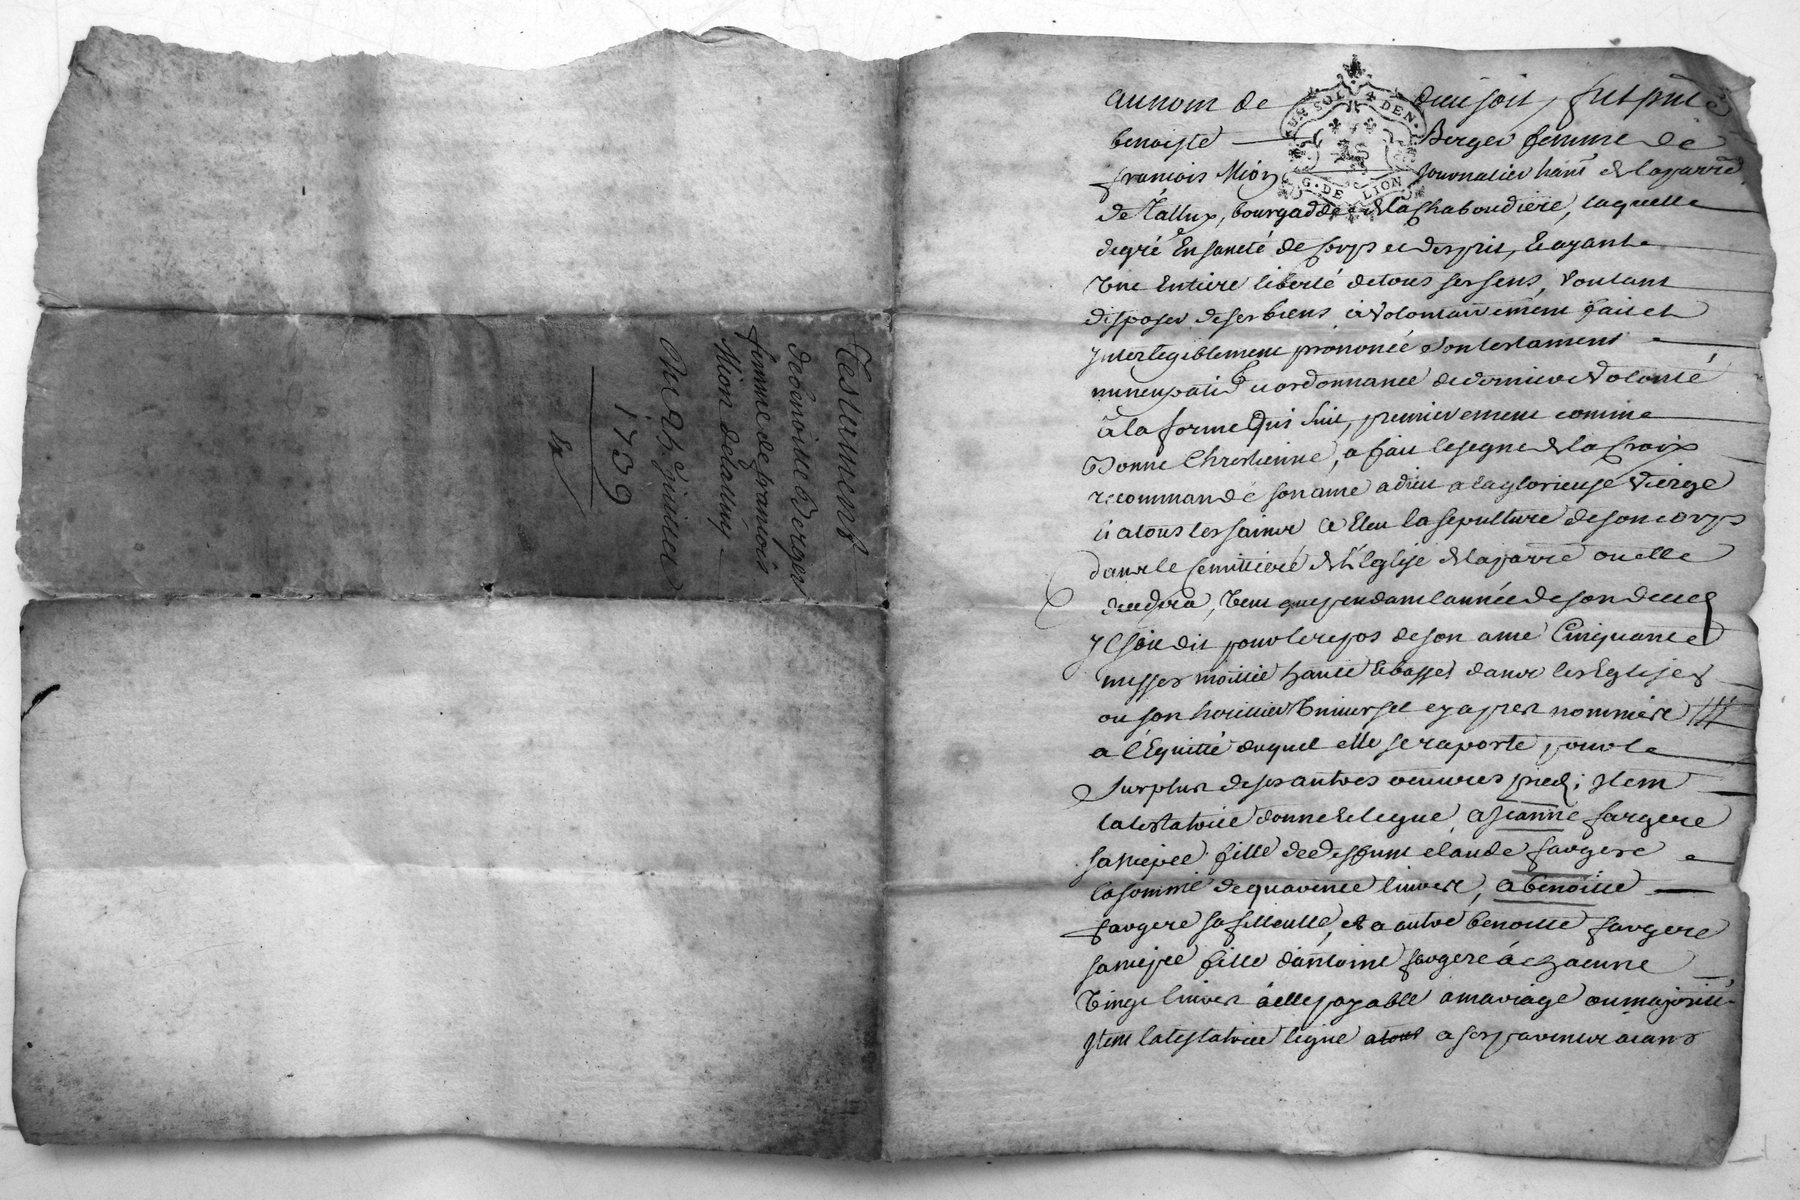 Testament
de benoitte berger
femme de francois
Mion de talluy
Du 25 Juillet
1739
au nom de dieu soit, fut pnte
benoiste Berger femme de
francois Mion Journalier hant de la parre
de Tallux, bourgadde de la Chaboudiere, laquelle
de gré En santé de Corps et d'esprit, Et ayant
Une Entiere liberté de tous ses sens, Voulant
disposer de ses biens à volontairement fait et
Intelegiblement prononcé son testament
nuncupatif et ordonnance de derniere Volonté
à la forme Qui suit, premierement comme
Bonne Chrestienne, a fait le segne de la Croix
recommandé son ame a dieu a la glorieuse Vierge
et a tous les saints a Eleu la sepulture de son corps
dans le Cemittiere de l'Eglise de la parre ou elle
deedera, Veut que pendant l'année de son deces
Il soit dit pour le repos de son ame Cinquante
messes moitié haute Et basses dans les Eglises
ou son heritier Universel cy apres nommé
a l'Equitté duquel elle se raporte pour le
Surplus de ses autres oeuvres pies; Item
la testatrice donne Et legue a Jeanne fargere
sa niepce fille de deffunt claude fargere
la somme de quarente livres, a benoitte
fargere sa filleulle, et a autre benoitte fargere
sa niepce fille d'antoine fargere à chacune
Vingt livres à elle payable a mariage ou majorité
Item la testatrice legue a tous a ses parents aians
UN SOL 4 DEN.
G. DE LION